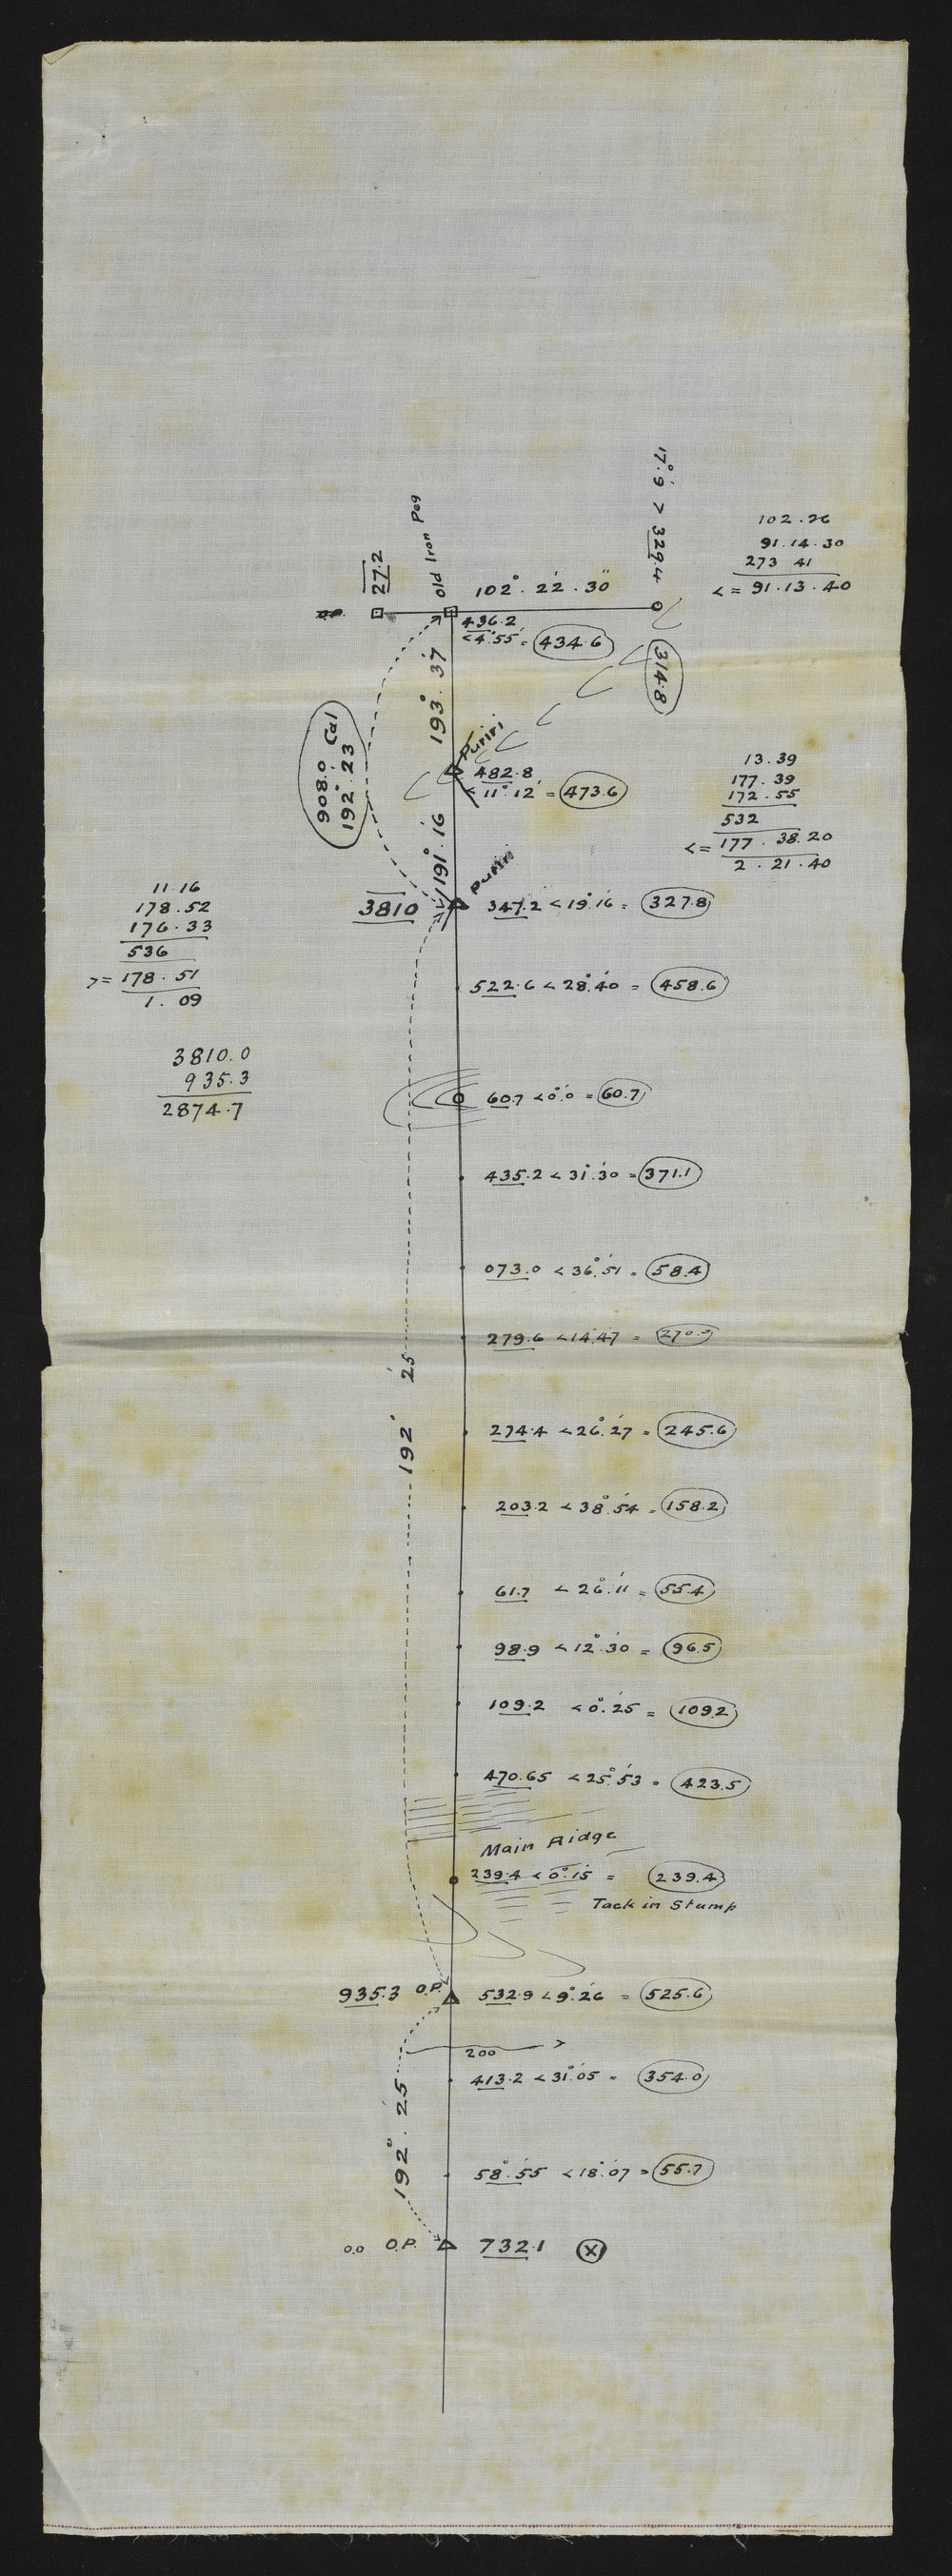 17°.9' > 329.4
Old Iron Peg
27.2
O.P.
102°.22'.30"
102.26
91.14.30
273 41
< = 91.13.40
436.2
<4°.55' = 434.6
314.8
193°.37'
908.0 Cal
192°.23'
Puriri
482.8
< 11°.12' = 473.6
13.39
177.39
172.55
532
< = 177.38.20
2.21.40
191°.16'
Puriri
3810
347.2 < 19°.16' = 327.8
11.16
178.52
176.33
536
> = 178.51
1.09
522.6 < 28°.40' = 458.6
3810.0
935.3
2874.7
60.7 < 0°.0' = 60.7
435.2 < 31°.30' = 371.1
073.0 < 36°.51' = 58.4
279.6 < 14.47 =
192° 25'
274.4 < 26°.27' = 245.6
203.2 < 38°.54' = 158.2
61.7 < 26°.11' = 55.4
98.9 < 12°.30' = 96.5
109.2 < 0°.25' = 109.2
470.65 < 25°.53' = 423.5
Main Ridge
239.4 < 0°.15' = 239.4
Tack in Stump
935.3 O.P. 532.9 < 9°.26' = 525.6
200
413.2 < 31°.05' = 354.0
192°.25'
58°.55' < 18°.07' = 55.7
0.0 O.P. 732.1 X